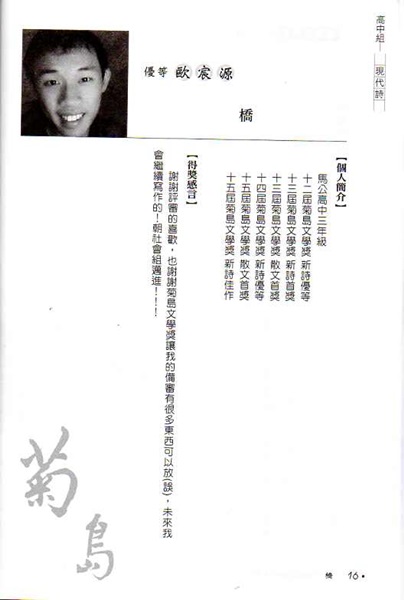 高中組—現代詩
優等 歐宸源
橋
【個人簡介】
馬公高中三年級
十二屆菊島文學獎 新詩優等
十三屆菊島文學獎 新詩首獎
十三屆菊島文學獎 散文首獎
十四屆菊島文學獎 新詩優等
十五屆菊島文學獎 散文首獎
十五屆菊島文學獎 新詩佳作
【得獎感言】
謝謝評審的喜歡，也謝謝菊島文學獎讓我的備審有很多東西可以放(誤)，未來我
會繼續寫作的！朝社會組邁進！！！
菊島
橋 16•